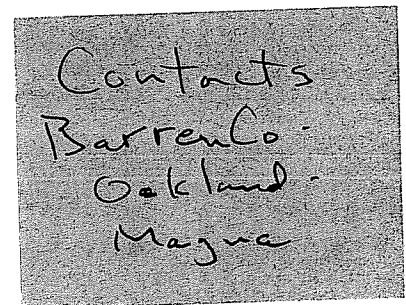 Contacts
BarrenCo.
Oakland.
Magna